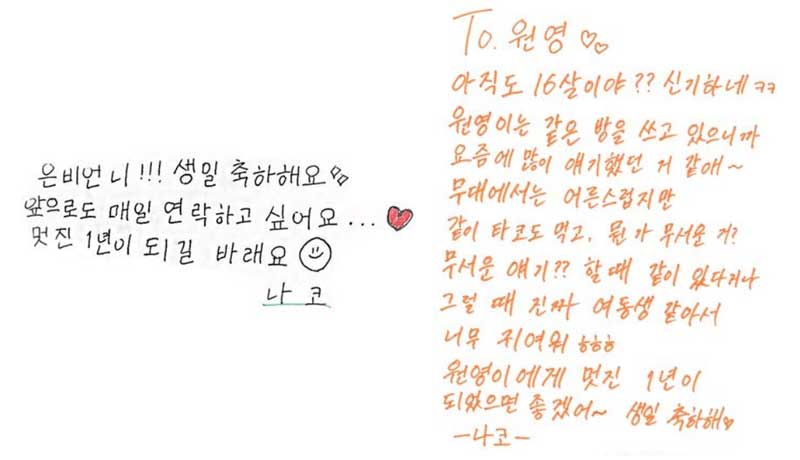 은비언니!!! 생일 축하해요
앞으로도 매일 연락하고 싶어요...
멋진 1년이 되길 바래요
나코
To. 원영
아직도 16살이야?? 신기하네ㅋㅋ
원영이는 같은 방을 쓰고 있으니까
요즘에 많이 얘기했던 거 같애~
무대에서는 어른스럽지만
같이 타코도 먹고, 뭔가 무서운 거?
무서운 얘기?? 할 때 같이 있다거나
그럴 때 진짜 여동생 같아서
너무 귀여워 ㅎㅎㅎ
원영이에게 멋진 1년이
되었으면 좋겠어~ 생일 축하해
-나코-